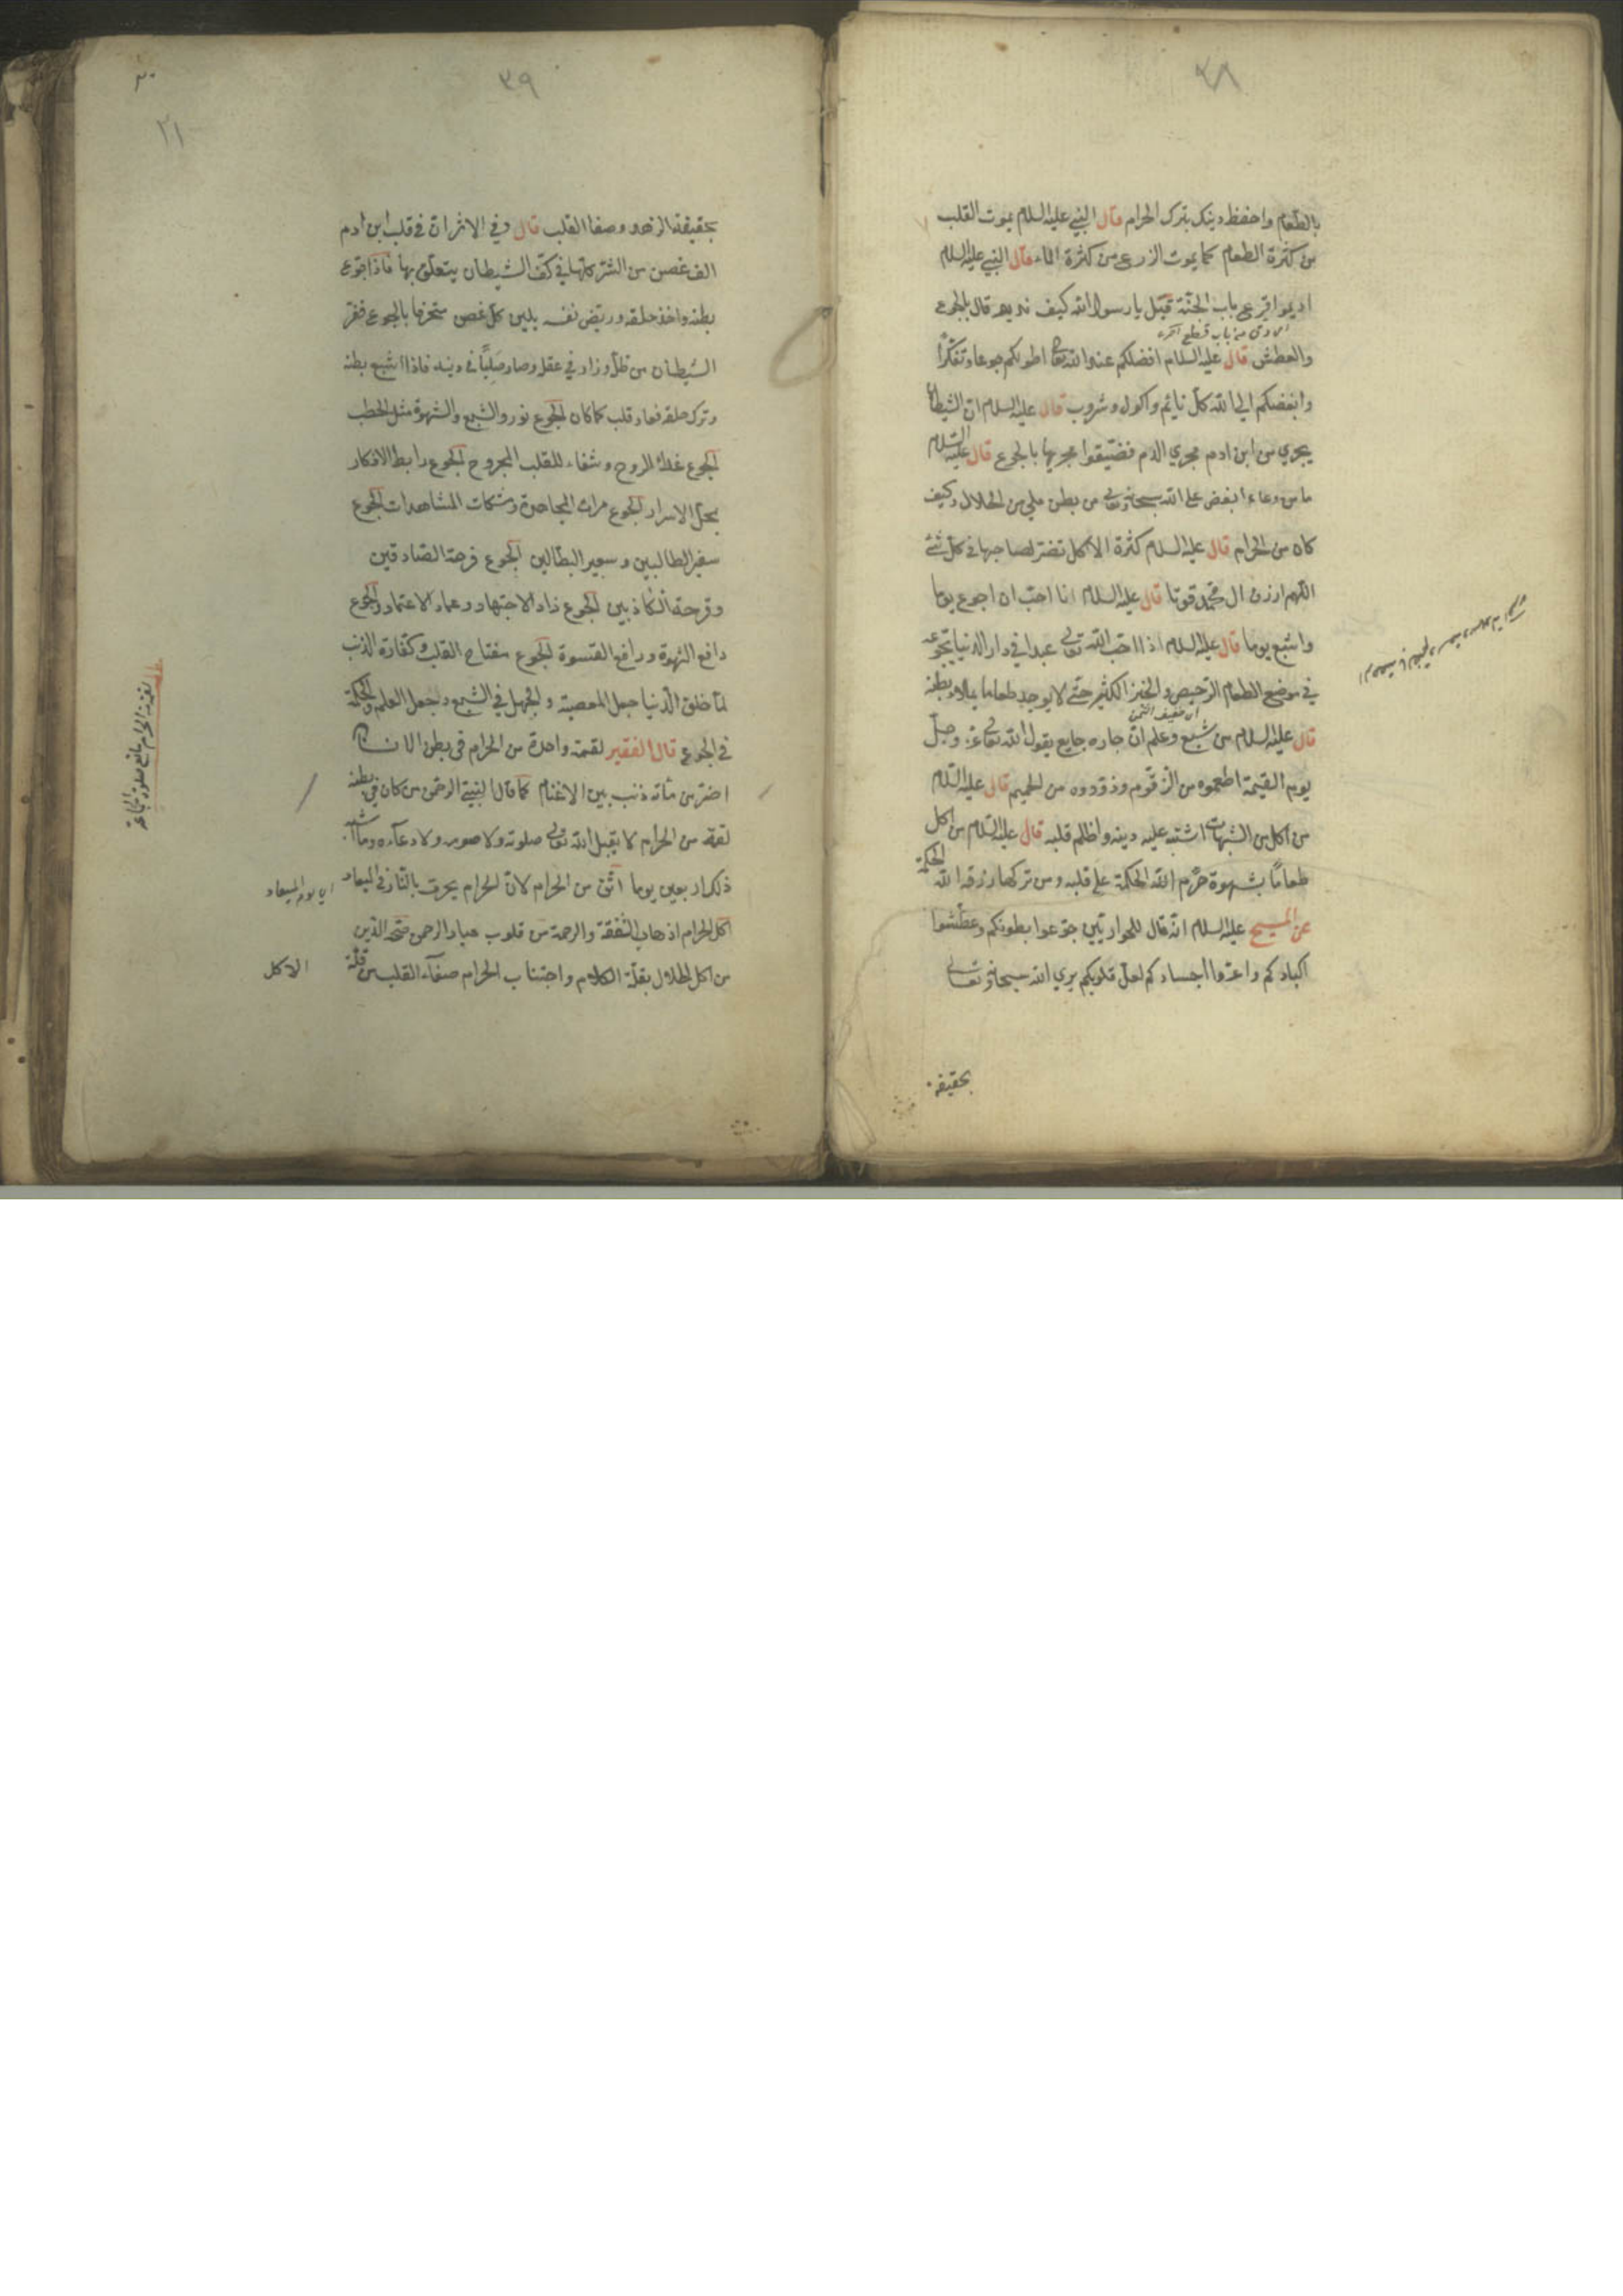 ٣٨
بالطعام واحفظ دينك بترك الحرام قال النبي عليه السلام يموت القلب
من كثرة الطعام كما يموت الزرع من كثرة الماء قال النبي عليه السلام
اديموا قرع باب الجنة قيل يا رسول الله كيف نديم قال بالجوع
والعطش قال عليه السلام افضلكم عند الله تعا اطولكم جوعا وتفكرا
وابغضكم الى الله كل نايم واكول وشروب قال عليه السلام ان الشيطان
يجري من ابن ادم مجري الدم فضيقوا مجريها بالجوع قال عليه السلام
ما من وعاء ابغض على الله سبحانه وتعالى من بطن ملي من الحلال وكيف
كان من الحرام قال عليه السلام كثرة الاكل تضر لصاحبها في كل شئ
اللهم ارزق ال محمد قوتا قال عليه السلام انا احب ان اجوع يوما
واشبع يوما قال عليه السلام اذا احب الله تعالى عبدا في دار الدنيا يجوعه
في موضع الطعام الرخيص والخبز الكثير حتى لا يوجد طعاما يملاء بطنه
قال عليه السلام من شبع وعلم ان جاره جايع يقول الله تعالى عز وجل
يوم القيمة اطعموه من الزقوم وذوقوه من الحميم قال عليه السلام
من اكل من الشبهات اشتبه عليه دينه واظلم قلبه قال عليه السلام من اكل
طعاما بشهوة حرم الله الحكمة على قلبه ومن تركها رزقه الله الحكمة
عن المسيح عليه السلام انه قال للحواريين جوعوا بطونكم وعطشوا
اكبادكم واعروا اجسادكم لعل قلوبكم يري الله سبحانه وتعالى
بحقيقة
٣٩
٢١
بحقيقة الزهد وصفا القلب قال وفي الاثر ان في قلب ابن ادم
الف غصن من الشر كلها في كف الشيطان يتعلق بها فاذا جوع
بطنه واخذ حلقه وريض نفسه يلبس كل غصن بالجوع ففر
الشيطان من ظله وزاد في عقله وصار صلبا في دينه فاذا اشبع بطنه
وترك حلقه فعاد قلبه كما كان الجوع نور والشبع والشهوة مثل الحطب
الجوع غذاء الروح وشفاء للقلب المجروح الجوع رابط الافكار
محل الاسرار الجوع مرات المجاهدة ومشكات المشاهدات الجوع
سفير الطالبين وسعير البطالين الجوع فرحة الصادقين
وقرحة الكاذبين الجوع زاد الاجتهاد وعماد الاعتماد الجوع
دافع الشهوة ورافع القسوة الجوع مفتاح القلب وكفارة الذنب
لما خلق الدنيا جعل المعصية والجهل في الشبع وجعل العلم والحكمة
في الجوع قال الفقير لقمة واحدة من الحرام في بطن الانسان
اضر من مأئة ذئب بين الاغنام كما قال النبي الرحمن من كان في بطنه
لقمة من الحرام لا يقبل الله تعالى صلوته ولا صومه ولا دعاءه وما
ذلك اربعين يوما من الحرام لان الحرام يحرق بالنار في الميعاد
اي يوم الميعاد
اكل الحرام اذهاب الشفقة والرحمة من قلوب عباد الرحمن صحة الدين
من اكل الحلال بقلة الكلام واجتناب الحرام صفاء القلب من قلة
الاكل
لقمة الحرام مانع